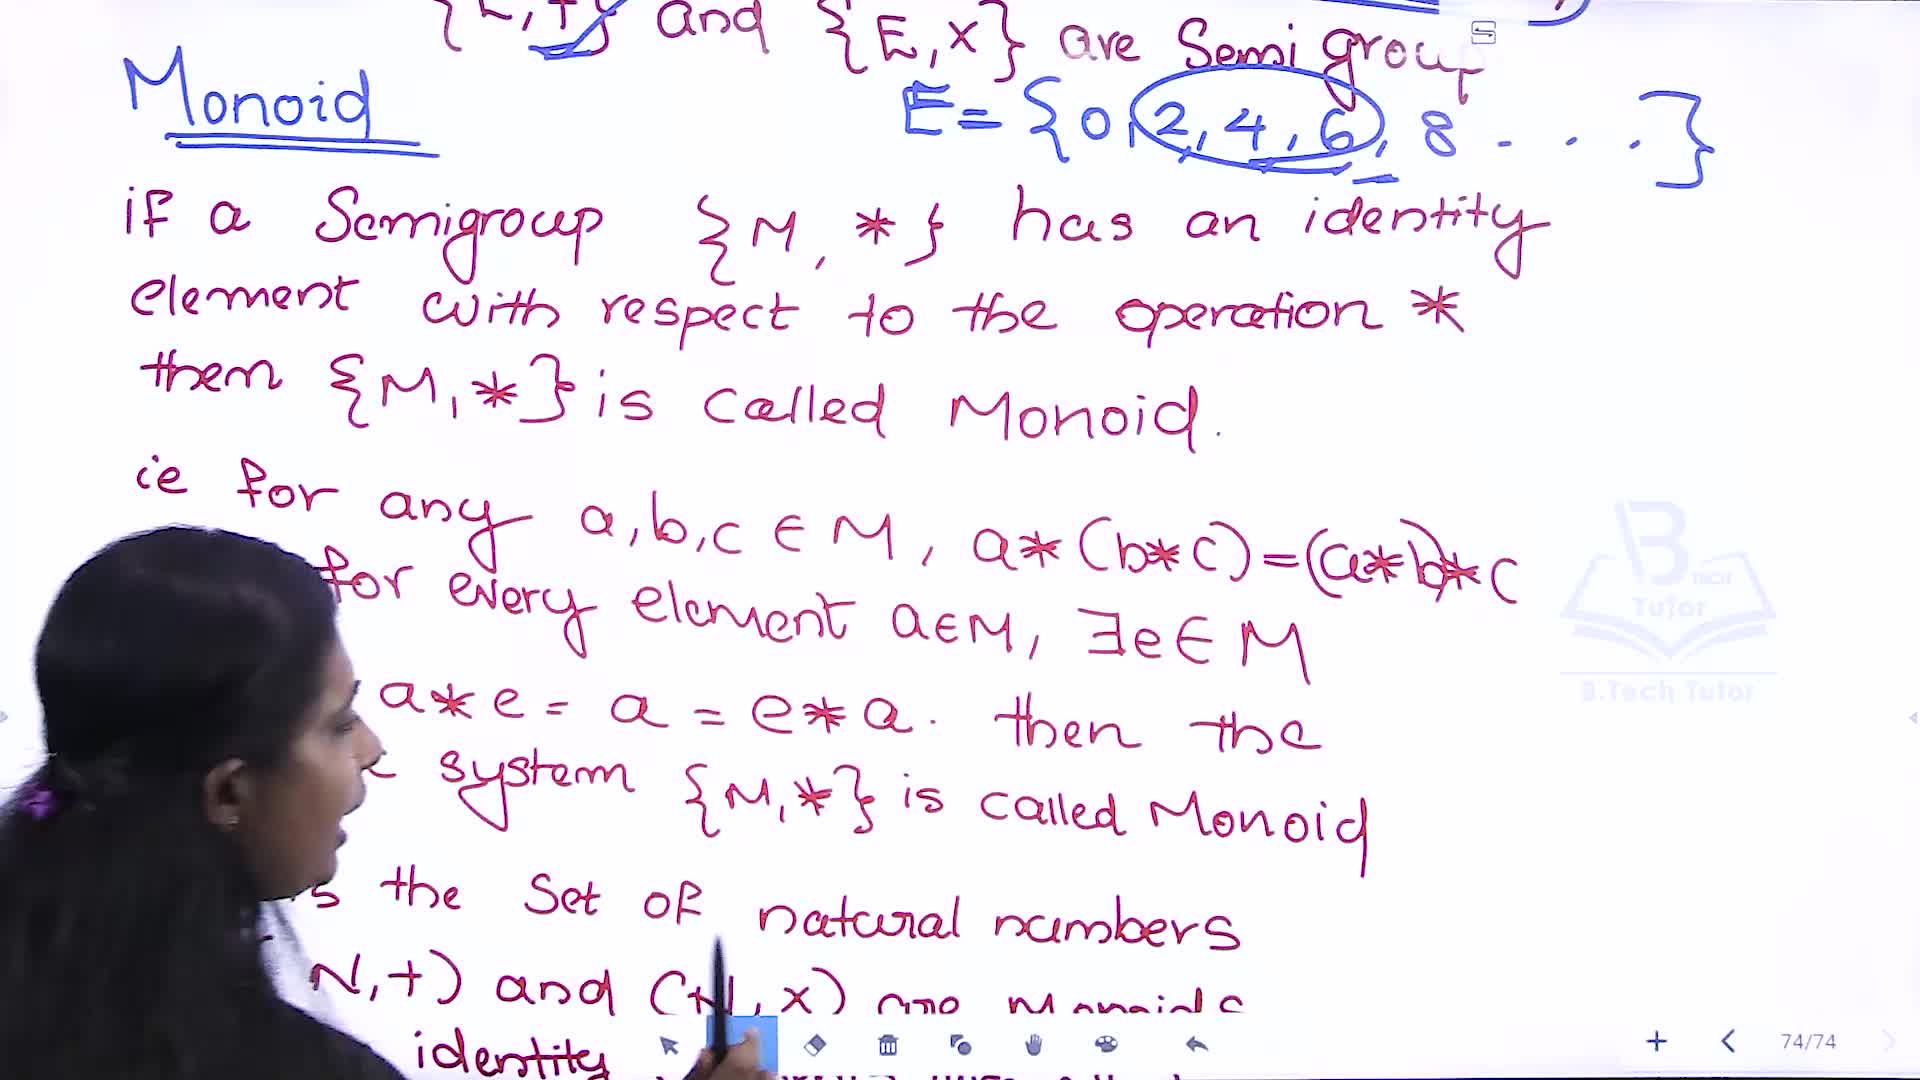 and {E, ×} are Semi group
Monoid
E = {0, 2, 4, 6, 8 . . . . }
if a Semigroup {M, *} has an identity
element with respect to the operation *
then {M, *} is called Monoid.
ie for any a, b, c ∈ M, a * (b * c) = (a * b) * c
for every element a ∈ M, ∃ e ∈ M
a * e = a = e * a. then the
system {M, *} is called Monoid
the set of natural numbers
N, +) and (N, ×) are Monoids
identity
B
TECH
Tutor
B.Tech Tutor
74/74